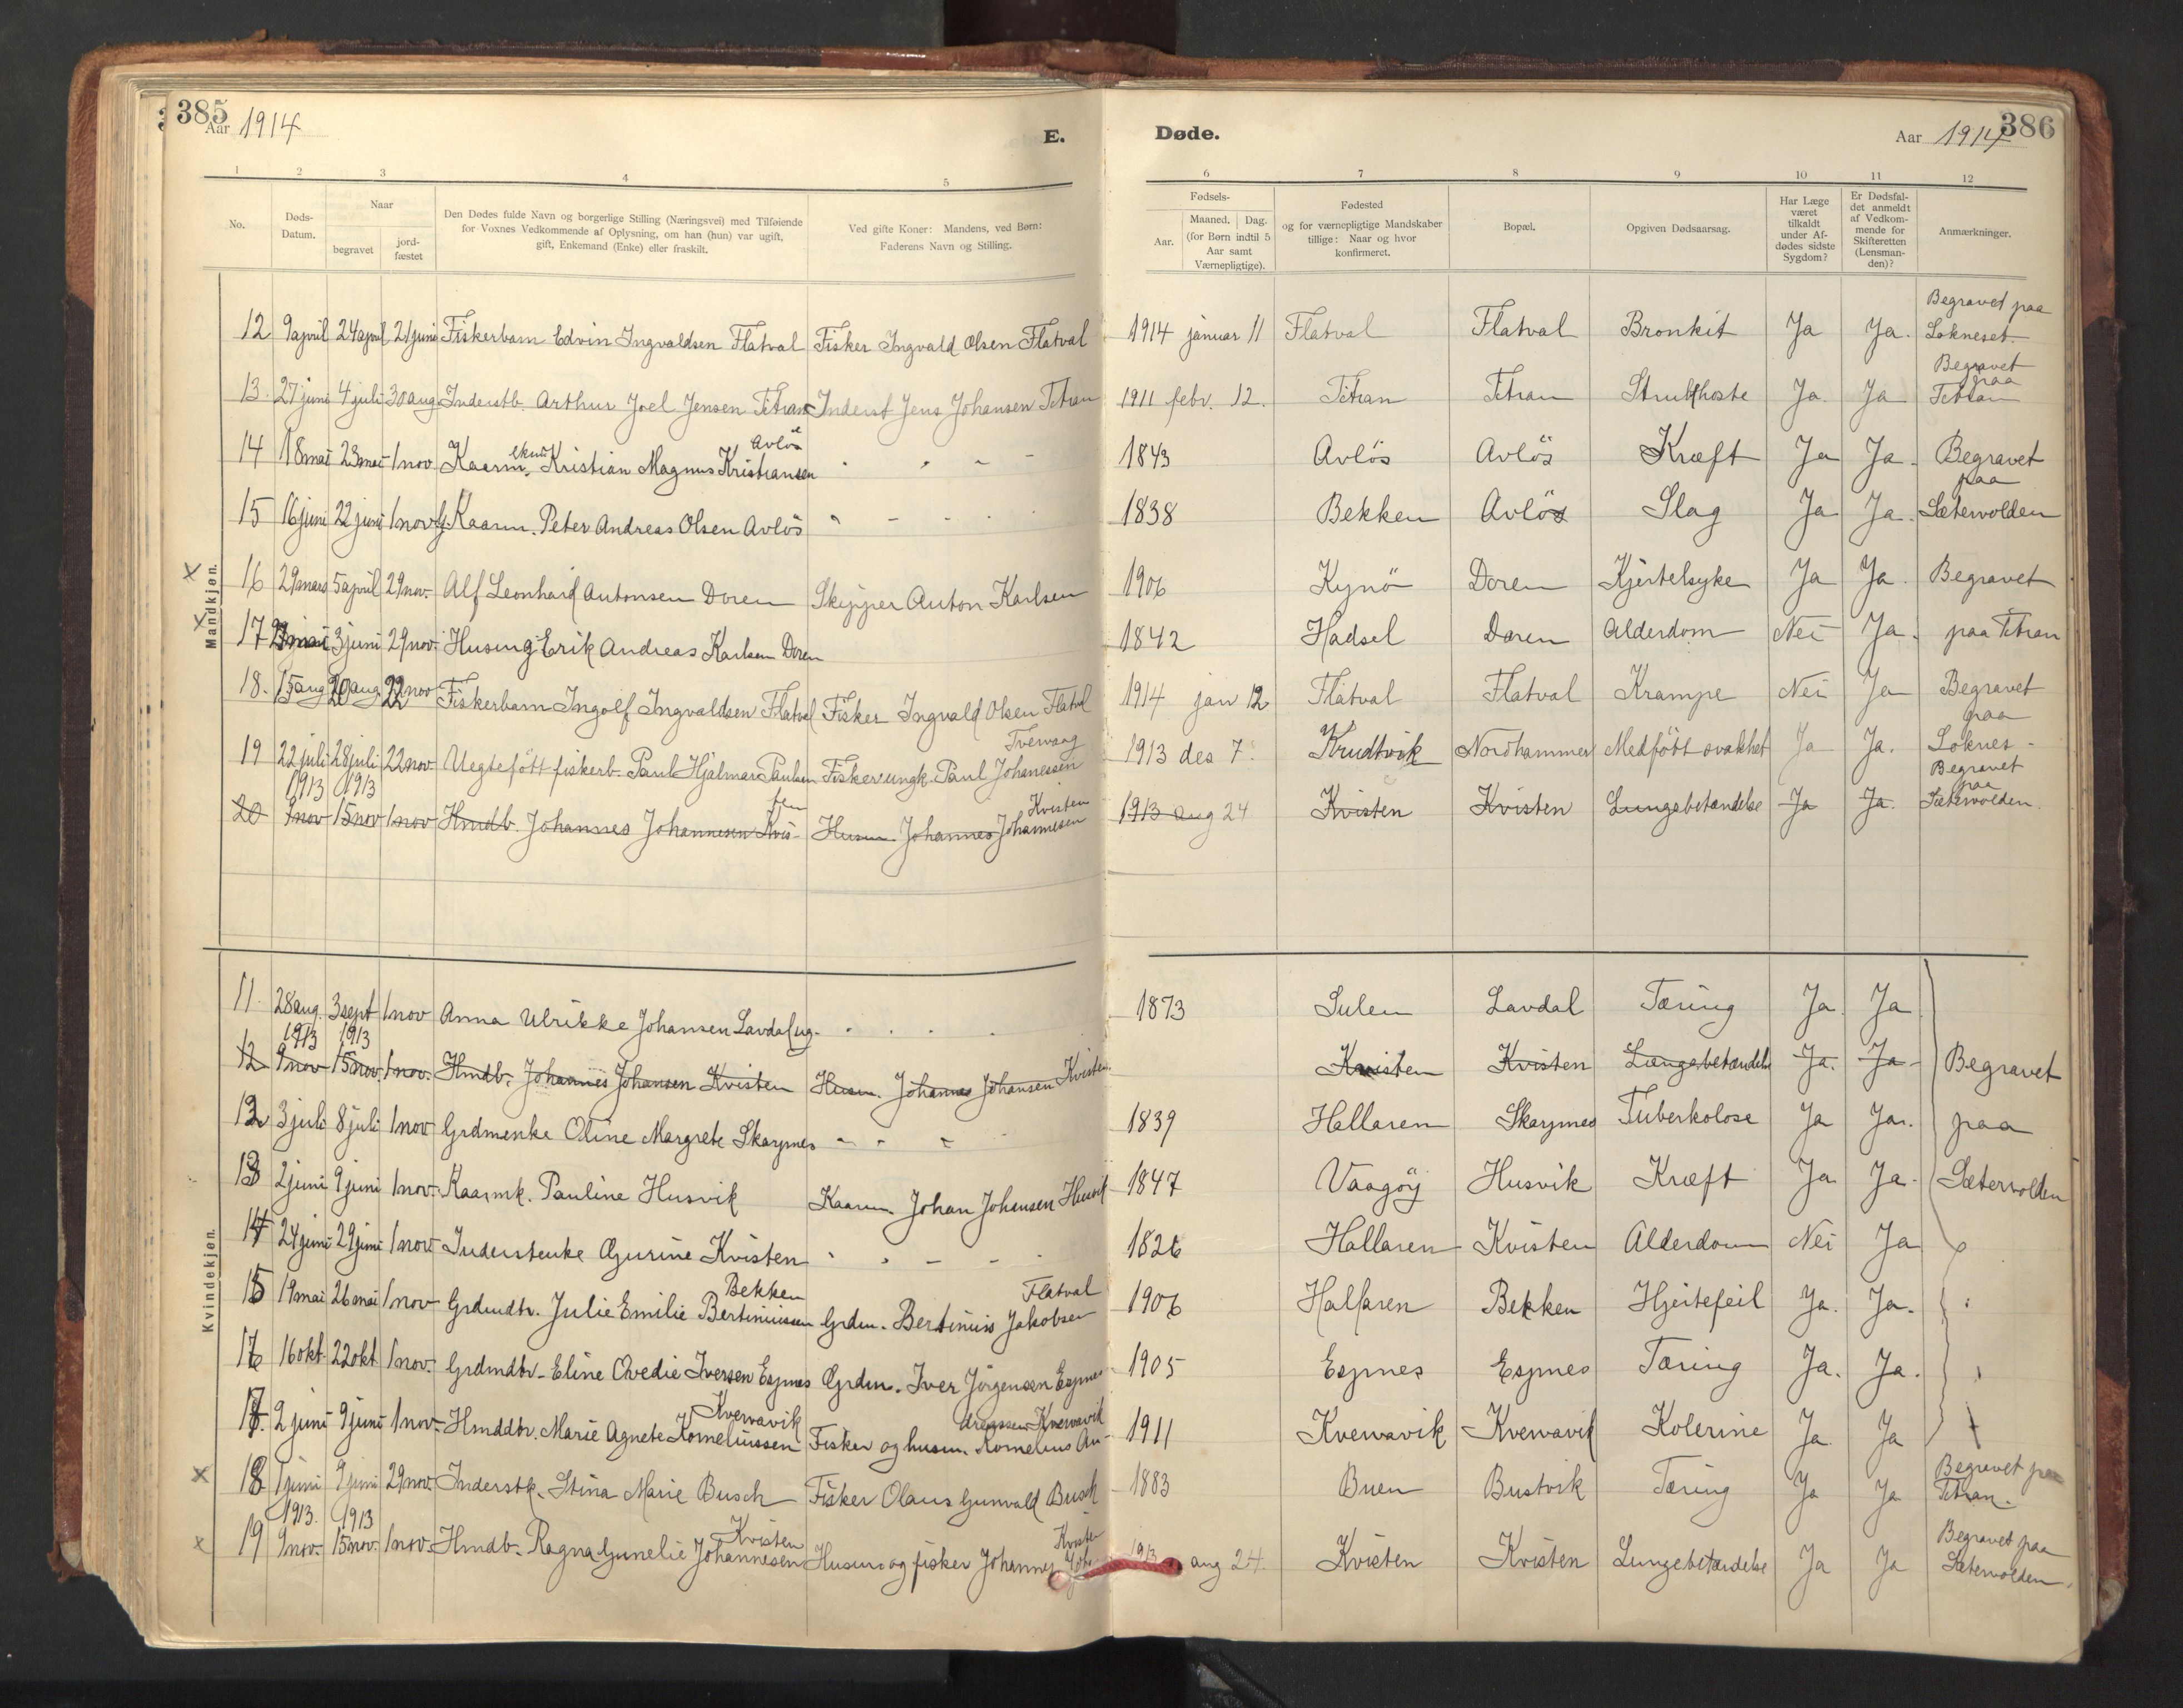 385
Aar 1914
E.
Døde.
Aar 1914
386
1 2 3 4 5 6 7 8 9 10 11 12
No.
Døds-Datum.
Naar
begravet
jord-fæstet
Den Dødes fulde Navn og borgerlige Stilling (Næringsvei) med Tilføiende
for Voxnes Vedkommende af Oplysning, om han (hun) var ugift,
gift, Enkemand (Enke) eller fraskilt.
Ved gifte Koner: Mandens, ved Børn:
Faderens Navn og Stilling.
Fødsels-
Aar.
Maaned. Dag.
(for Børn indtil 5
Aar samt
Værnepligtige).
Fødested
og for værnepligtige Mandskaber
tillige: Naar og hvor
konfirmeret.
Bopæl.
Opgiven Dødsaarsag.
Har Læge
været
tilkaldt
under Af-
dødes sidste
Sygdom?
Er Dødsfal-
det anmeldt
af Vedkom-
mende for
Skifteretten
(Lensman-
den)?
Anmærkninger.
Mandkjøn.
12 9april 24april 21juni Fiskerbarn Edvin Ingvaldsen Flatval Fisker Ingvald Olsen Flatval 1914 januar 11 Flatval Flatval Bronkit Ja Ja. Begravet paa Sokneset.
13. 27 juni 4 juli 30 aug Inderstb. Arthur Joel Jensen Titran Inderst Jens Johansen Titran 1911 febr. 12. Titran Titran Strubhoste Ja Ja Begravet paa Titran
14 18mai 23mai 1 nov Kaarm. Kristian Magnus Kristiansen Avlös 1843 Avlös Avlös Kræft Ja Ja. Begravet paa
15 16juni 22 juni 1 nov G. Kaarm. Peter Andreas Olsen Avlös 1838 Bekken Avlös Slag Ja Ja. Sætervolden
X 16 29mars 5april 29nov. Alf Leonhard Antonsen Doren Skipper Anton Karlsen 1906 Kynö Doren Kjertelsyke Ja Ja. Begravet
X 17 mai 3juni 29nov. Erik Andreas Karlsen Doren 1842 Hadsel Doren Alderdom Nei Ja. paa Titran
18. 15aug 20aug 22nov Fiskerbarn Ingolf Ingvaldsen Flatval Fisker Ingvald Olsen Flatval 1914 jan 12 Flatval Flatval Krampe Nei Ja Begravet paa
19 22 juli 28juli 22nov Uegtefött fiskerb. Paul Hjalmar Paulsen Fisker ungk. Paul Johanessen Tvervaag 1913 des 7. Krudtvik Nordhammer Medfött svakhet Ja Ja. Soknes.
1913 1913
20 9nov 15nov 1nov Hmdb. Johannes Johannesen Kvis-ten Husm. Johannes Johannesen Kvisten 1913 aug 24 Kvisten Kvisten Lungebetændelse Ja Ja. Begravet paa Sætervolden.
Kvindekjøn.
11. 28aug. 3sept 1nov Anna Ulrikke Johansen Lavdal ug. 1873 Sulen Lavdal Tæring Ja Ja
1913 1913
12 9nov 15nov. 1nov. Hmdb. Johannes Johansen Kvisten Husm. Johannes Johansen Kvisten Kvisten Kvisten Lungebetændelse Ja. Ja Begravet
12 3juli 8juli 1nov Grdmenke Oline Margrete Skarpnes 1839 Hallaren Skarpnes Tuberkolose Ja Ja. paa
13 2juni 9juni 1nov. Kaarmk. Pauline Husvik Kaarm. Johan Johansen Husvik 1847 Vaagöy Husvik Kræft Ja Ja. Sætervolden
14 24juni 29juni 1nov Inderstenke Gurine Kvisten 1826 Hallaren Kvisten Alderdom Nei Ja
15 19mai 26mai 1nov Grdmdtr. Julie Emilie Bertiniussen Bekken Grdm. Bertinius Jakobsen Flatval 1906 Hallaren Bekken Hjertefeil Ja. Ja.
16 16okt. 22okt 1nov. Grdmdtr. Eline Ovedie Iversen Espnes Grdm. Iver Jörgensen Espnes 1905 Espnes Espnes Tæring Ja. Ja.
17. 2juni 9juni 1nov. Hmddtr. Marie Agnete Korneliussen Kvervavik Fisker og husm. Kornelius Andreassen Kvervavik 1911 Kvervavik Kvervavik Kolerine Ja Ja
X 18 1juni 9juni 29nov. Inderstk. Stina Marie Busch Fisker Olaus Gunvald Busch 1883 Buen Bustvik Tæring Ja Ja Begravet paa Titran.
1913. 1913
X 19 9nov. 15nov. 1nov. Hmdb. Ragna Gunelie Johannesen Kvisten Husm. og fisker Johannes Kvisten 1913 aug 24. Kvisten Kvisten Lungebetændelse Ja Ja Begravet paa Sætervolden.